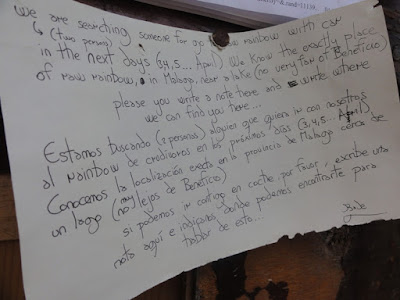 We are searching someone for go rainbow with car
(two persons)
in the next days (3,4,5... April) We know the exactly place
of raw rainbow, in Malaga, near a lake (no very far of Beneficio)
please you write a note there and write where
we can find you there...
Estamos buscando (2 personas) alguien que quiera ir con nosotras
al rainbow de crudivoros en los próximos días (3,4,5... April).
Conocemos la localización exacta en la provincia de Malaga cerca de
un lago (no muy lejos de Beneficio)
si podemos ir contigo en coche por favor, escribe una
nota aquí e indicanos donde podemos encontrarte para
hablar de esto...